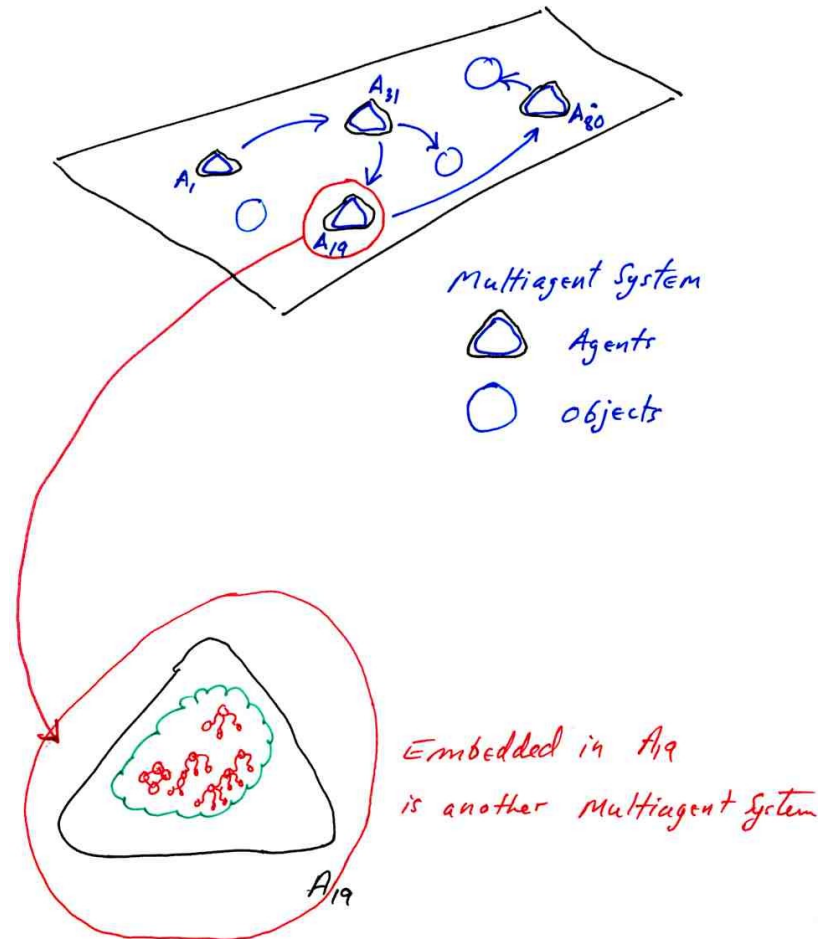 A31
A80
A1
A19
Multiagent System
Agents
Objects
Embedded in A19
is another Multiagent System
A19